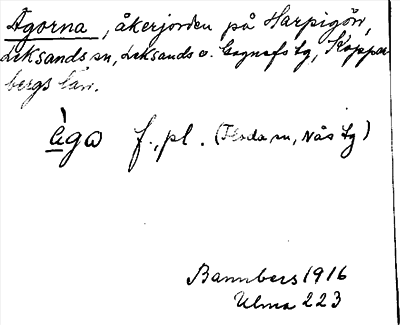 Agorna, åkerjorden på Harpigörv,
Leksands sn, Leksands o. Gagnefs tg, Koppar-
bergs län.
àga f., pl. (Floda sn, Nås tg)
Bannbers 1916
Ulma 223